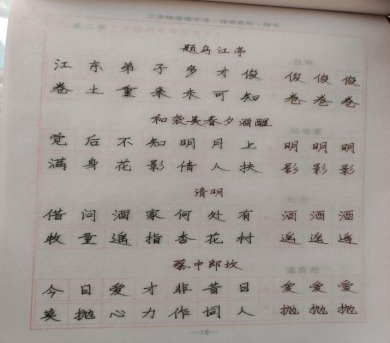 题乌江亭
江东弟子多才俊 俊俊俊
卷土重来未可知 卷卷卷
和袭美春夕酒醒
觉后不知明月上 明明明
满身花影倩人扶 影影影
清明
借问酒家何处有 酒酒酒
牧童遥指杏花村 遥遥遥
蔡中郎坟
今日爱才非昔日 爱爱爱
莫抛心力作词人 抛抛抛